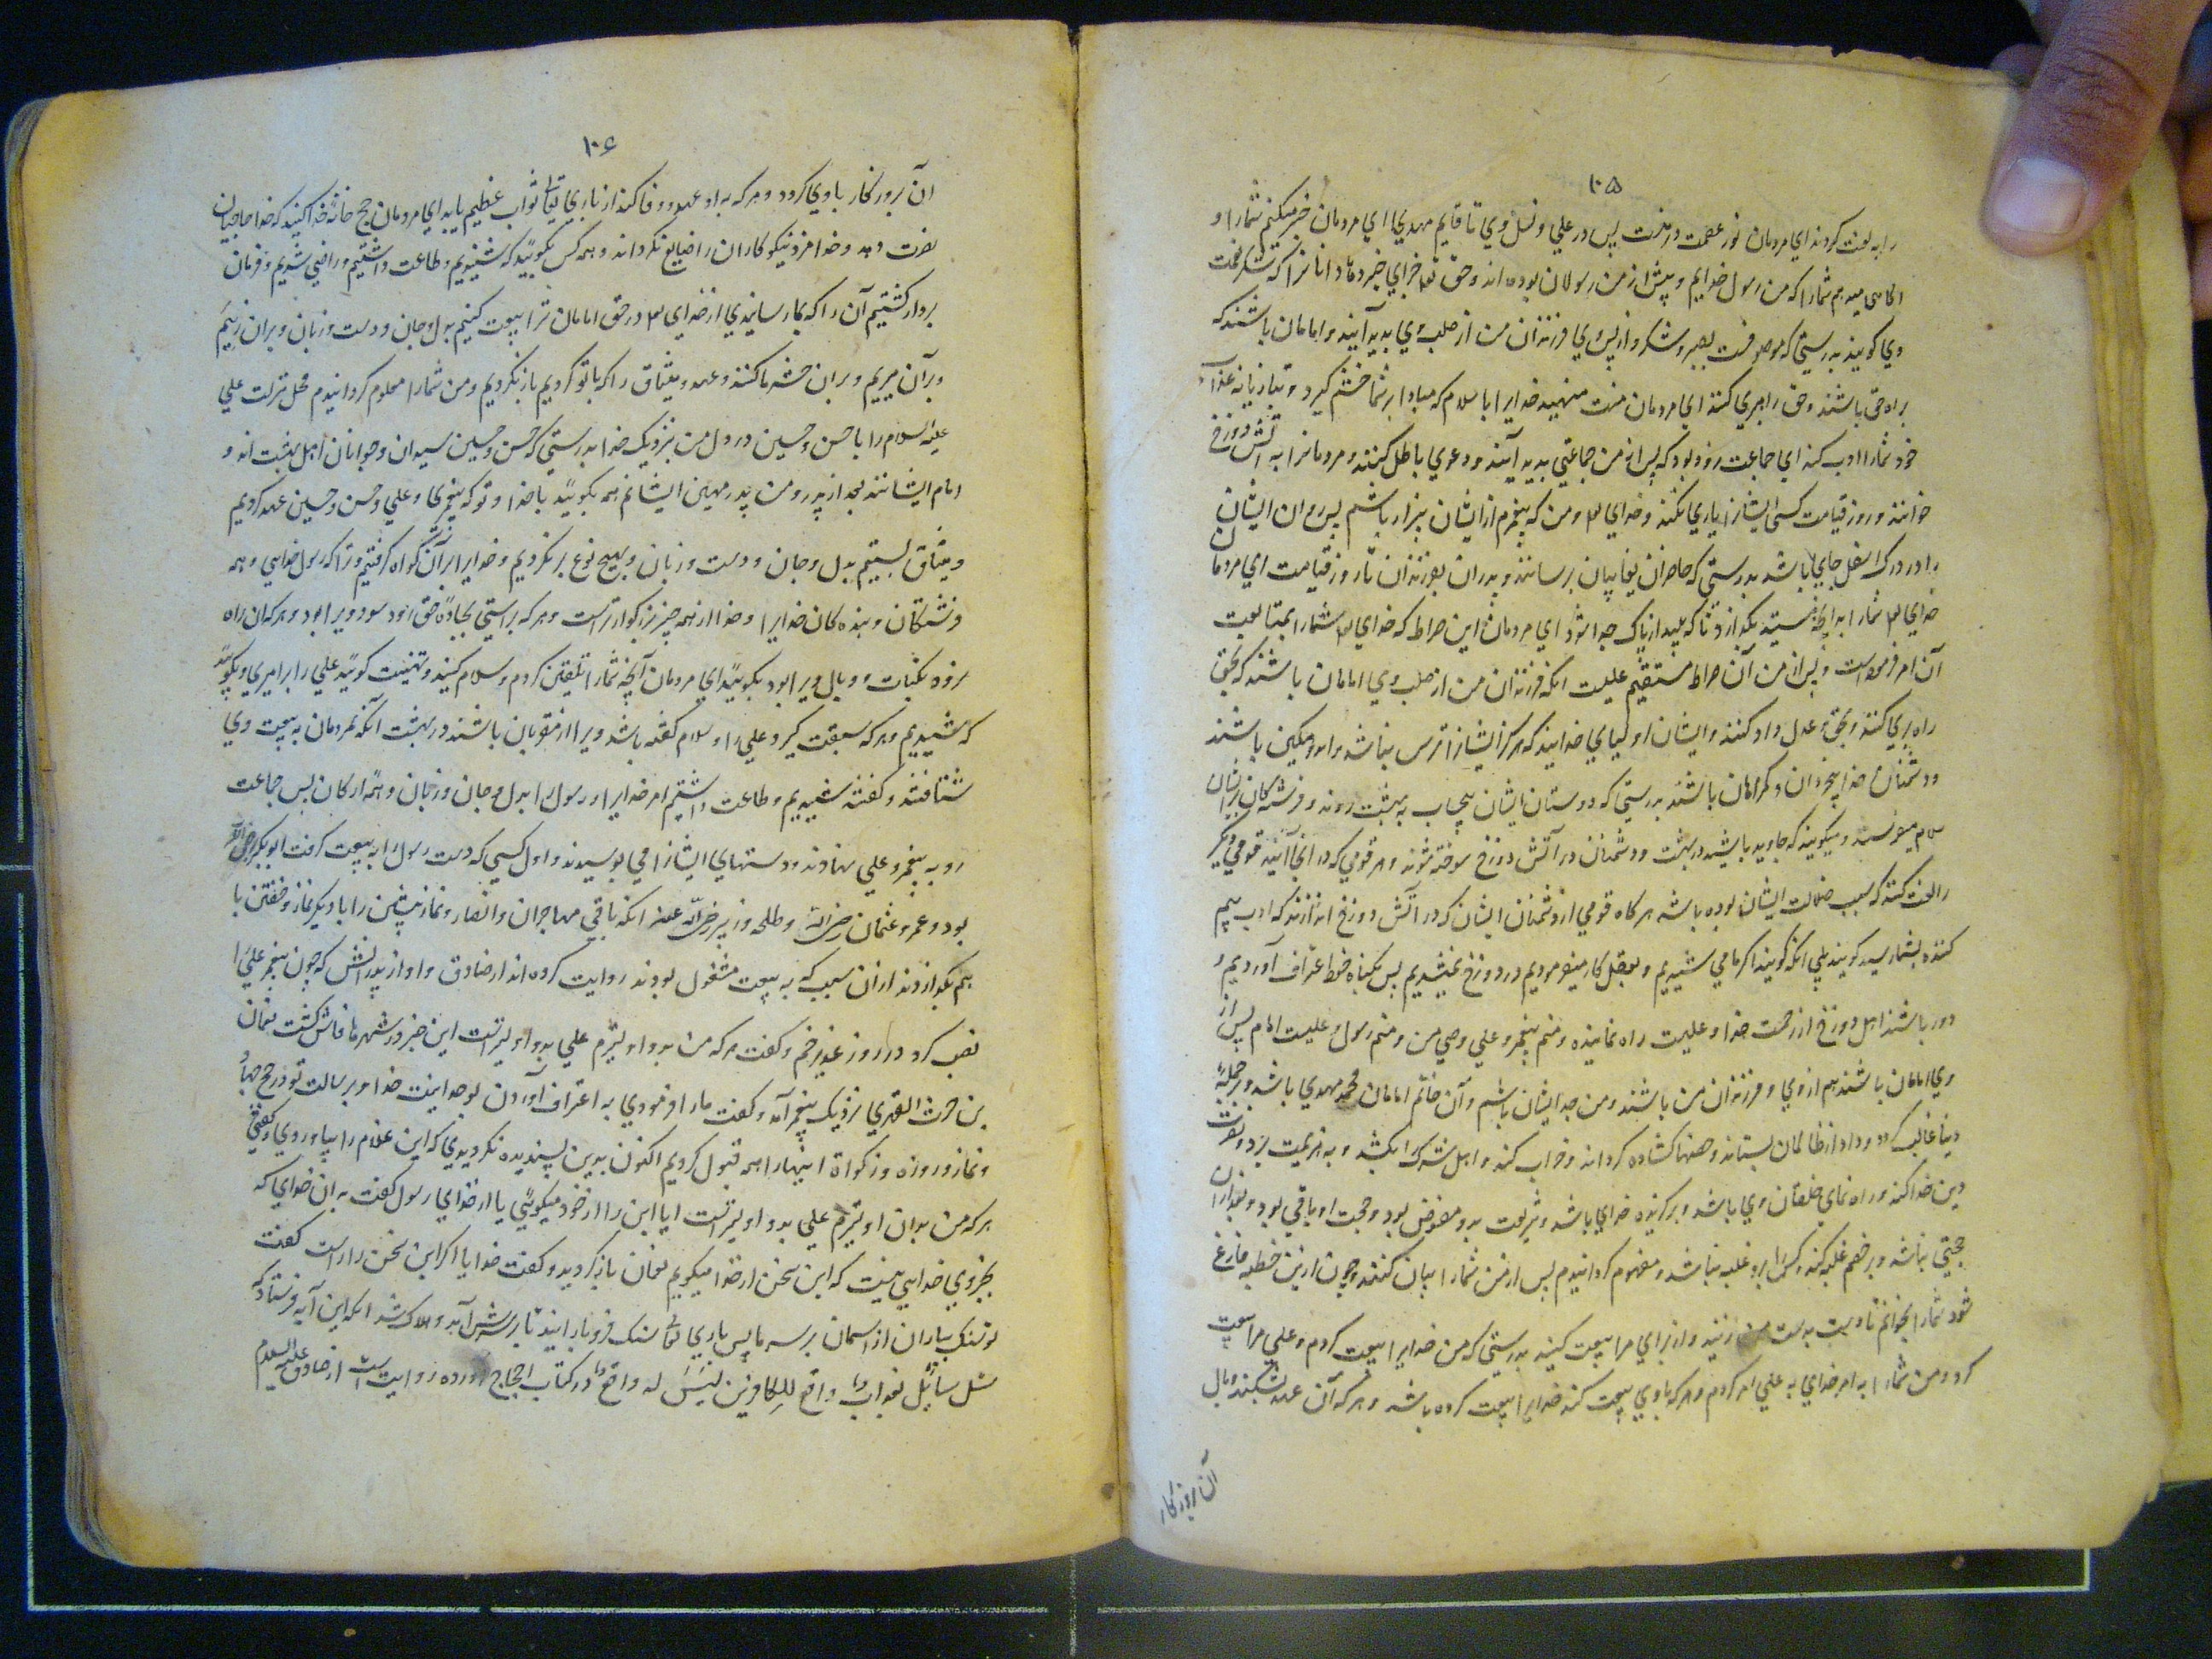 ۱۰۵
را به لعنت کردند ای مردمان نور عصمت در منست پس در علی و نسل وی تا قایم مهدی ای مردمان خبر میکنم شما را و
آگاهی میدهم شما را که من رسول خدایم و پیش از من رسولان بوده اند و حق تع جزای خیر دهاد آنانرا که شکر نعمت
وی گویند بدرستی که موصوفست بصبر و شکر و از پس وی فرزندان من از صلب وی پدید آیند و امامان باشند که
براه حق باشند و حق راهبری کنند ای مردمان منت منهید خدایرا باسلام که مبادا بر شما خشم گیرد و بتازیانه عذاب
خود شما را ادب کند ای جماعت زود بود که پس از من جماعتی پدید آیند و دعوی باطل کنند و مردمانرا به آتش دوزخ
خوانند و روز قیامت کسی ایشانرا یاری نکند و خدای و من که پیغمبرم از ایشان بیزار باشم پس روان ایشان
را در درک اسفل جای باشد بدرستی که حاضران بغایبان برسانند و پدران بفرزندان تا روز قیامت ای مردمان
خدای شما را بدانچه هستید نگذارد تا که پلید از پاک جدا شود ای مردمان این صراط که خدای شما را بمتابعت
آن امر فرموده است و پس از من آن صراط مستقیم علیست آنکه فرزندان من از صلب وی امامان باشند که بحق
راه بری کنند و بحق و عدل داد کنند و ایشان اولیای خدایند که هرگز ایشانرا ترس نباشد و اندوهگین باشند
و دشمنان خدا بیخردان و گمراهان باشند بدرستی که دوستان ایشان بیحساب به بهشت روند و فرشتگان بر ایشان
سلام میفرستند و میگویند که جاوید باشید در بهشت و دشمنان در آتش دوزخ سوخته شوند و هر قومی که در آنجا آیند قومی دیگر
را لعنت کنند که سبب ضلالت ایشان بوده باشد هرگاه قومی از دشمنان ایشان که در آتش دوزخ اندازند که ادب بیم
کننده بشما رسید گویند بلی آنکه گویند اگر ما می شنیدیم و بعقل کار میفرمودیم در دوزخ نمیشدیم پس بگناه خود اعتراف آوردیم و
دور باشند اهل دوزخ از رحمت خدا و علیست راه نماینده و منم پیغمبر و علی وصی من و منم رسول و علیست امام پس از
وی امامان باشند هم از وی و فرزندان من باشند و من جد ایشان باشم و آن خاتم امامان محمد مهدی باشد و بر جمله
دینا غالب گردد و داد از ظالمان بستاند و حصنها گشاده گرداند و خراب کند و اهل شرک را بکشد و به هزیمت برد و نصرت
دین خدا کند و راه نمای خلقان وی باشد و برگزیده خدای باشد و شریعت بدو مفوض بود و حجت او باقی بود و بعد از آن
حجتی نباشد و بر خصم غلبه کند و کس را بر او غلبه نباشد و مفهوم گردانیدم پس از من شما را بیان کنند و چون از این خطبه فارغ
شود شما را بخوانم تا دست بدست من زنید و از برای مرا بیعت کنید بدرستی که من خدایرا بیعت کردم و علی مرا بیعت
کرد و من شما را به امر خدای به علی امر کردم و هرکه با وی بیعت کند خدایرا بیعت کرده باشد و هرکه آن عهد بشکند وبال
آن بروزگار
۱۰۶
آن بروزگار با وی گردد و هرکه بدان عهد وفا کند از باری تعالی ثواب عظیم یابد ای مردمان حج خانه خدا کنید که خدا حاجیان
نصرت دهد و خدا مزد نیکوکاران را ضایع نگرداند و همه کس بگوئید که شنیدیم و طاعت داشتیم و راضی شدیم و فرمان
بردار گشتیم آن را که بما رسانیدی از خدای در حق امامان ترا بیعت کنیم بدل و جان و دست و زبان و بران زئیم
و بر آن میریم و بران حشر ما کنند و عهد و میثاق را که با تو کردیم باز نگردیم و من شما را معلوم گردانیدم محل منزلت علی
علیه السلام را با حسن و حسین در دل من و نزدیک خدا بدرستی که حسن و حسین سیدان و جوانان اهل بهشت اند و
امام ایشانند بعد از پدر و من پدر مهین ایشانم همه بگوئید با خدا و تو که پیغمبری و علی و حسن و حسین عهد کردیم
و میثاق بستیم بدل و جان و دست و زبان و بهیچ نوع بر نگردیم و خدایرا بر آن گواه گرفتیم و ترا که رسول خدایی و همه
فرشتگان و بنده گان خدایرا و خدا از همه چیز بزرگوارتر است و هرکه براستی بجاده حق رود سود ویرا بود و هرکه آن راه
رود نکبات و وبال ویرا بود بگوئید ای مردمان آنچه شما را تلقین کردم و سلام کنید و تهنیت گوئید علی را برامیری و بگوئید
که شنیدیم و هرکه سبقت گیرد علی را و سلام گفته باشد ویرا از مقربان باشند در بهشت آنکه مردمان به بیعت وی
شتافتند و گفتند شنیدیم و طاعت داشتیم امر خدایرا و رسول را بدل و جان و زبان و همه ارکان پس جماعت
رو به پیغمبر و علی نهادند و دستهای ایشانرا می بوسیدند و اول کسی که دست رسول را به بیعت گرفت ابوبکر رضی الله
بود و عمر و عثمان رضی الله و طلحه و زبیر رضی الله عنه آنکه باقی مهاجران و انصار و نماز پیشین را با دیگر نماز و خفتن با
هم بگذاردند از آن سبب که به بیعت مشغول بودند روایت کرده اند از صادق و او از پدرانش که چون پیغمبر علی را
نصب کرد در روز غدیر خم و گفت هرکه من بدو اولیترم علی بدو اولیتر است این خبر در شهرها فاش گشت نعمان
بن حرث الفهری نزدیک پیغمبر آمد و گفت ما را فرمودی به اعتراف آوردن بوحدانیت خدا و برسالت تو و در حج جهاد
و نماز و روزه و زکواة اینها را همه قبول کردیم اکنون بدین پسندیده نکردیدی که این غلام را بپا وردی و گفتی
هرکه من بدان اولیترم علی بدو اولیتر است آیا این را از خود میگوئی یا از خدای رسول گفت به آن خدای که
بجز وی خدایی نیست که این سخن از خدا میگویم نعمان باز گردید و گفت خدایا اگر این سخن راست گفت
تو سنگ بباران از آسمان بر سر ما پس باری تعالی سنگ فرو بارانید تا بر سرش آمد و هلاک شد آنکه این آیه فرستاد که
سئل سائل بعذاب واقع للکافرین لیس له دافع در کتاب احتجاج آورده روایت است از صادق علیه السلام